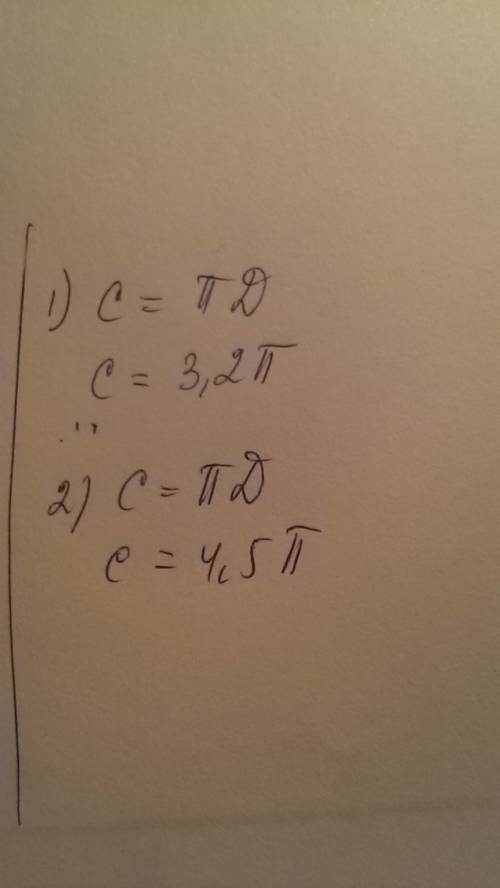 1) C = πD
C = 3,2π
2) C = πD
C = 4,5π